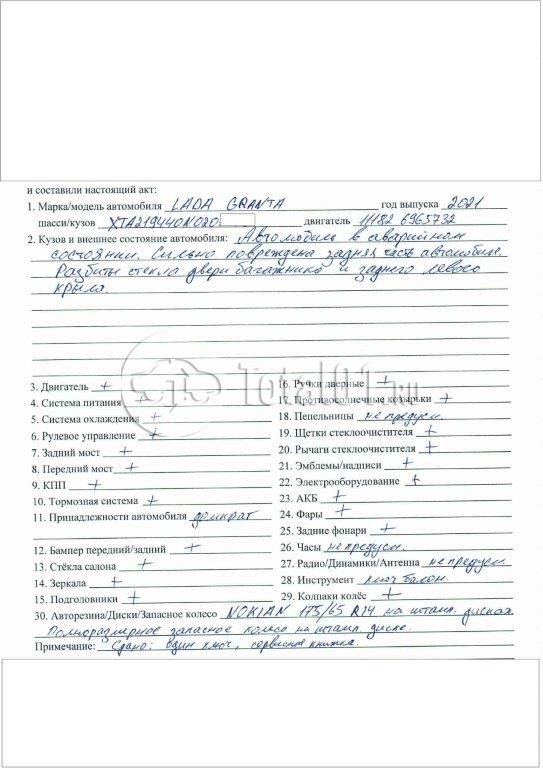 и составили настоящий акт:
1. Марка/модель автомобиля LADA GRANTA год выпуска 2021
шасси/кузов XTA219440N020 двигатель 11182 6965732
2. Кузов и внешнее состояние автомобиля: Автомобиль в аварийном
состоянии. Сильно повреждена задняя часть автомобиля.
Разбиты стекла двери багажника и заднего левого
крыла.
Total01.ru
3. Двигатель +
4. Система питания +
5. Система охлаждения +
6. Рулевое управление +
7. Задний мост +
8. Передний мост +
9. КПП +
10. Тормозная система +
11. Принадлежности автомобиля домкрат
12. Бампер передний/задний +
13. Стёкла салона +
14. Зеркала +
15. Подголовники +
16. Ручки дверные +
17. Противосолнечные козырьки +
18. Пепельницы не предусм.
19. Щетки стеклоочистителя +
20. Рычаги стеклоочистителя +
21. Эмблемы/надписи +
22. Электрооборудование +
23. АКБ +
24. Фары +
25. Задние фонари +
26. Часы не предусм.
27. Радио/Динамики/Антенна не предусм
28. Инструмент ключ балон.
29. Колпаки колёс +
30. Авторезина/Диски/Запасное колесо NOKIAN 175/65 R14 на штамп. дисках
Полноразмерное запасное колесо на штамп. диске.
Примечание: Сдано: один ключ, сервисная книжка.